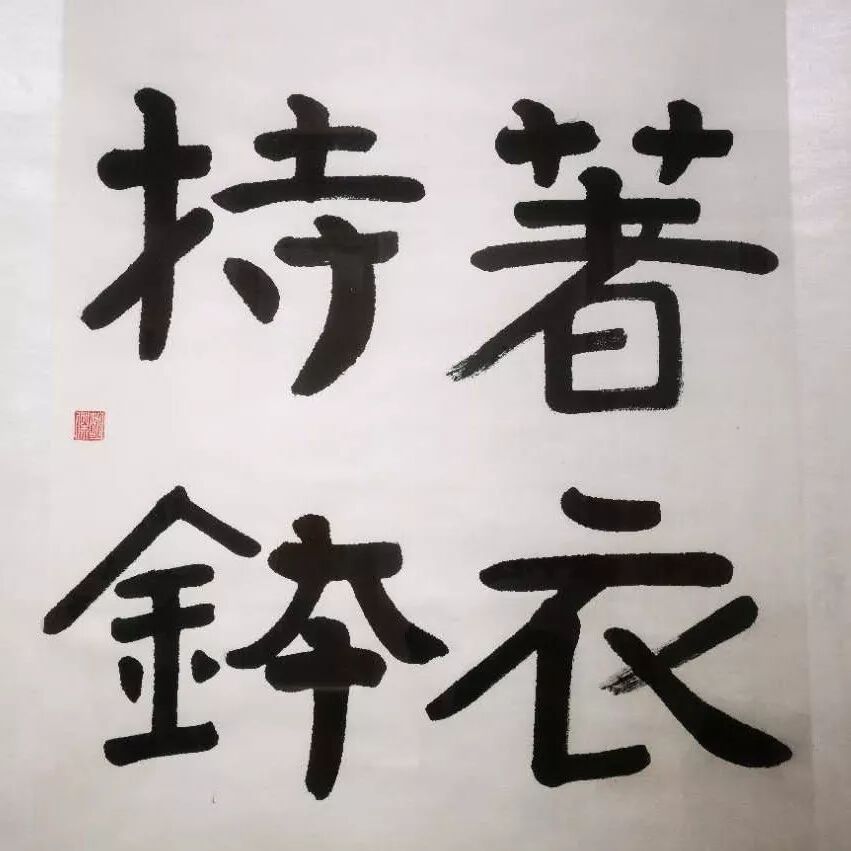 著衣
持鉢